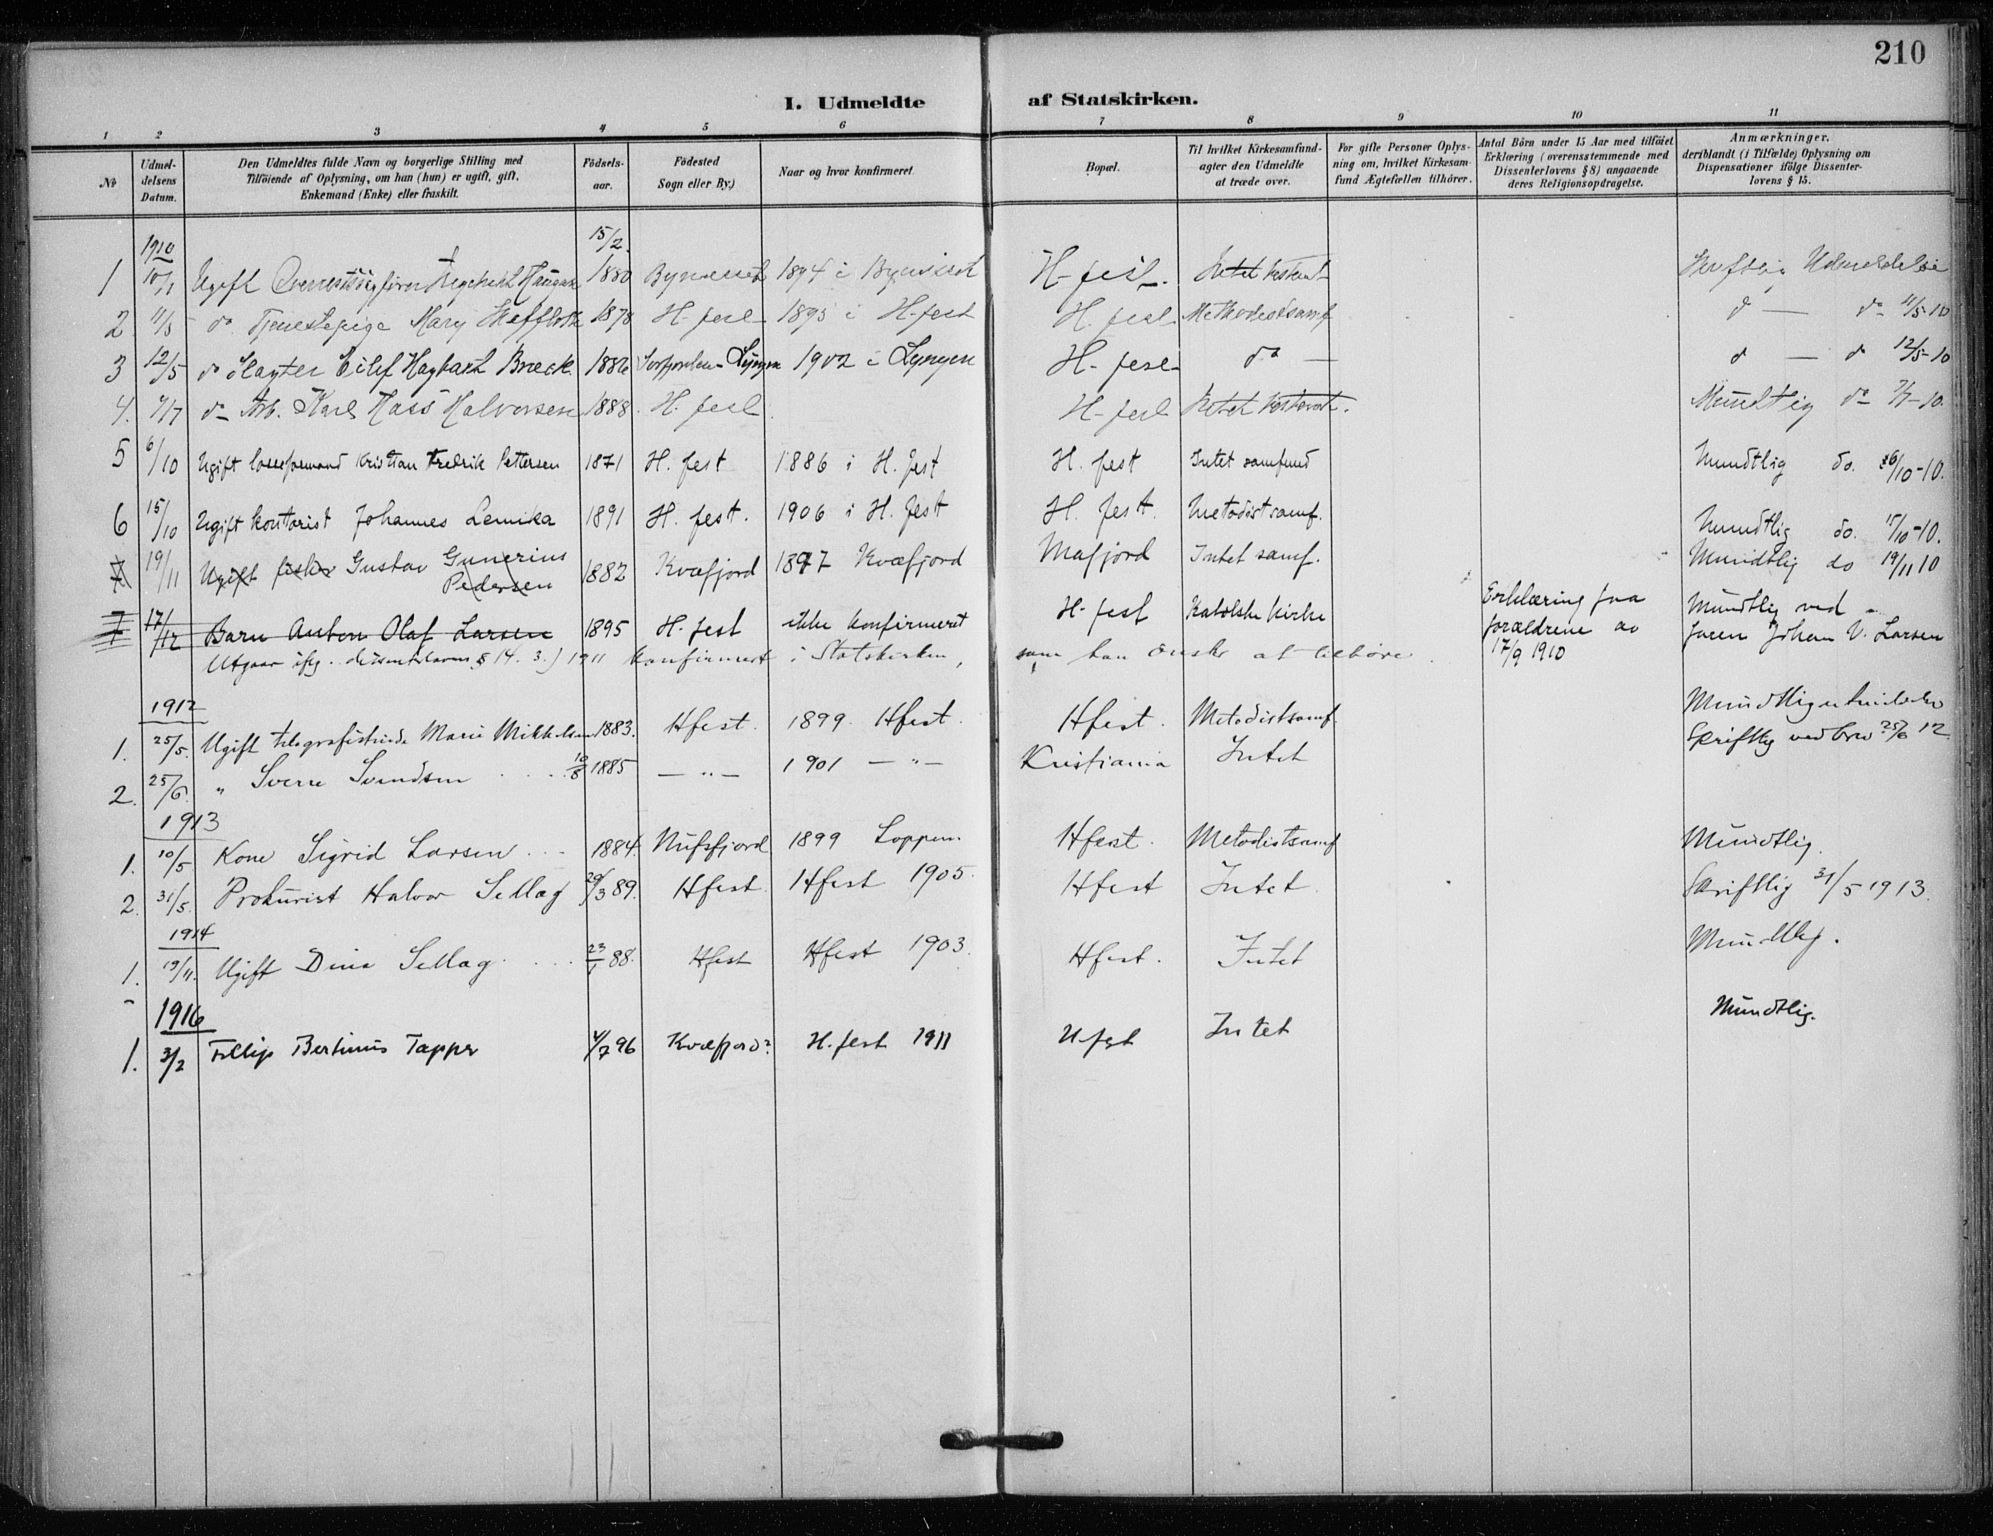 210
I. Udmeldte af Statskirken.
1 2 3 4 5 6 7 8 9 10 11
No
Udmel-
delsens
Datum.
Den Udmeldtes fulde Navn og borgerlige Stilling med
Tilföiende af Oplysning, om han (hun) er ugift, gift,
Enkemand (Enke) eller fraskilt.
Födsels-
aar.
Födested
Sogn eller By.)
Naar og hvor konfirmeret
Bopæl.
Til hvilket Kirkesamfund-
agter den Udmeldte
at træde over.
For gifte Personer Oplys-
ning om, hvilket Kirkesam-
fund Ægtefællen tilhörer.
Antal Börn under 15 Aar med tilföiet
Erklæring (overensstemmende med
Dissenterlovens § 8) angaaende
deres Religionsopdragelse.
Anmærkninger,
deriblandt (i Tilfælde) Oplysning om
Dispensationer ifölge Dissenter-
lovens § 15.
1910 15/2.
1 10/1 Ugift 1880 Bynesset 1894 i Bynesset H-fest. Intet
2 11/5 do Tjenestepige Mary 1878 H-fest 1893 i H-fest H. fest Methodistsamf d — do 11/5-10
3 12/5 do Slagter Eilef Hagbart Breck 1886 Sorfjorden-Lyngen 1902 i Lyngen H-fest do — d — do 12/5-10
4. 7/7 do Arb. Karl Hass Halvorsen 1888. H. fest H-fest Intet Mundtlig do 7/7-10.
5 6/10 Ugift losseformand Kristian Fredrik Pettersen 1871 H. fest 1886 i H. fest H. fest Intet samfund Mundtlig do. 6/10-10.
6 15/10 Ugift kontorist Johannes Lemika 1891 H. fest. 1906 i H. fest H. fest. Metodistsamf. Mundtlig do. 15/10-10.
7 19/11 Ugift fisker Gustav Gunerius
Pedersen 1882 Kvæfjord 1897 Kvæfjord Mafjord Intet samf. Mundtlig do 19/11 10
7 17/12 Barn Anton Olaf Larsen 1895 H-fest ikke konfirmeret H-fest Katolske kirke Erklæring fra
forældrene av
17/9 1910 Mundtlig ved
faren Johan V. Larsen
Utgaar ifg. dissenterloven § 14. 3.) 1911 konfirmert i Statskirken, som han ønsker at tilhøre.
1912
1. 25/5. Ugift telegrafistinde Marie Mikkelsen 1883. Hfest. 1899. Hfest. Hfest. Metodistsamf.
2. 25/6. " Sverre Svendsen 10/8 1885 — " — 1901 — " — Kristiania Intet Skriftlig ved brev 25/6 12
1913
1. 10/5 Kone Sigrid Larsen 1884. Nufsfjord 1899 Loppen. Hfest. Metodistsamf Mundtlig.
2. 31/5. Prokurist Halvor Sellæg 29/3 89. Hfest. Hfest 1905. Hfest Intet. Skriftlig 31/5 1913.
1914
1. 19/11. Ugift Dina Sellæg 23/1 88. Hfest Hfest 1903. Hfest. Intet Mundtlig.
1916
1. 3/2 Fillip Bertinus Tapper 4/7 96 Kvæfjord? H. fest 1911 H-fest Intet Mundtlig.